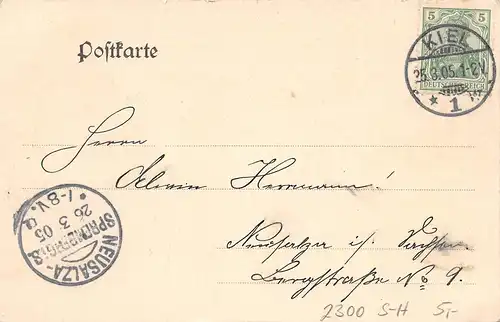 Postkarte
5 5
DEUTSCHES REICH
KIEL
25.3.05.1-2N
* 1 *
Herrn
Alwin Herrmann!
Neusalza i/ Sachsen
Bergstraße No 9.
NEUSALZA-
SPREMBERG i.S.
26 3 05
* 7-8 V.
2300 S-H 5,-